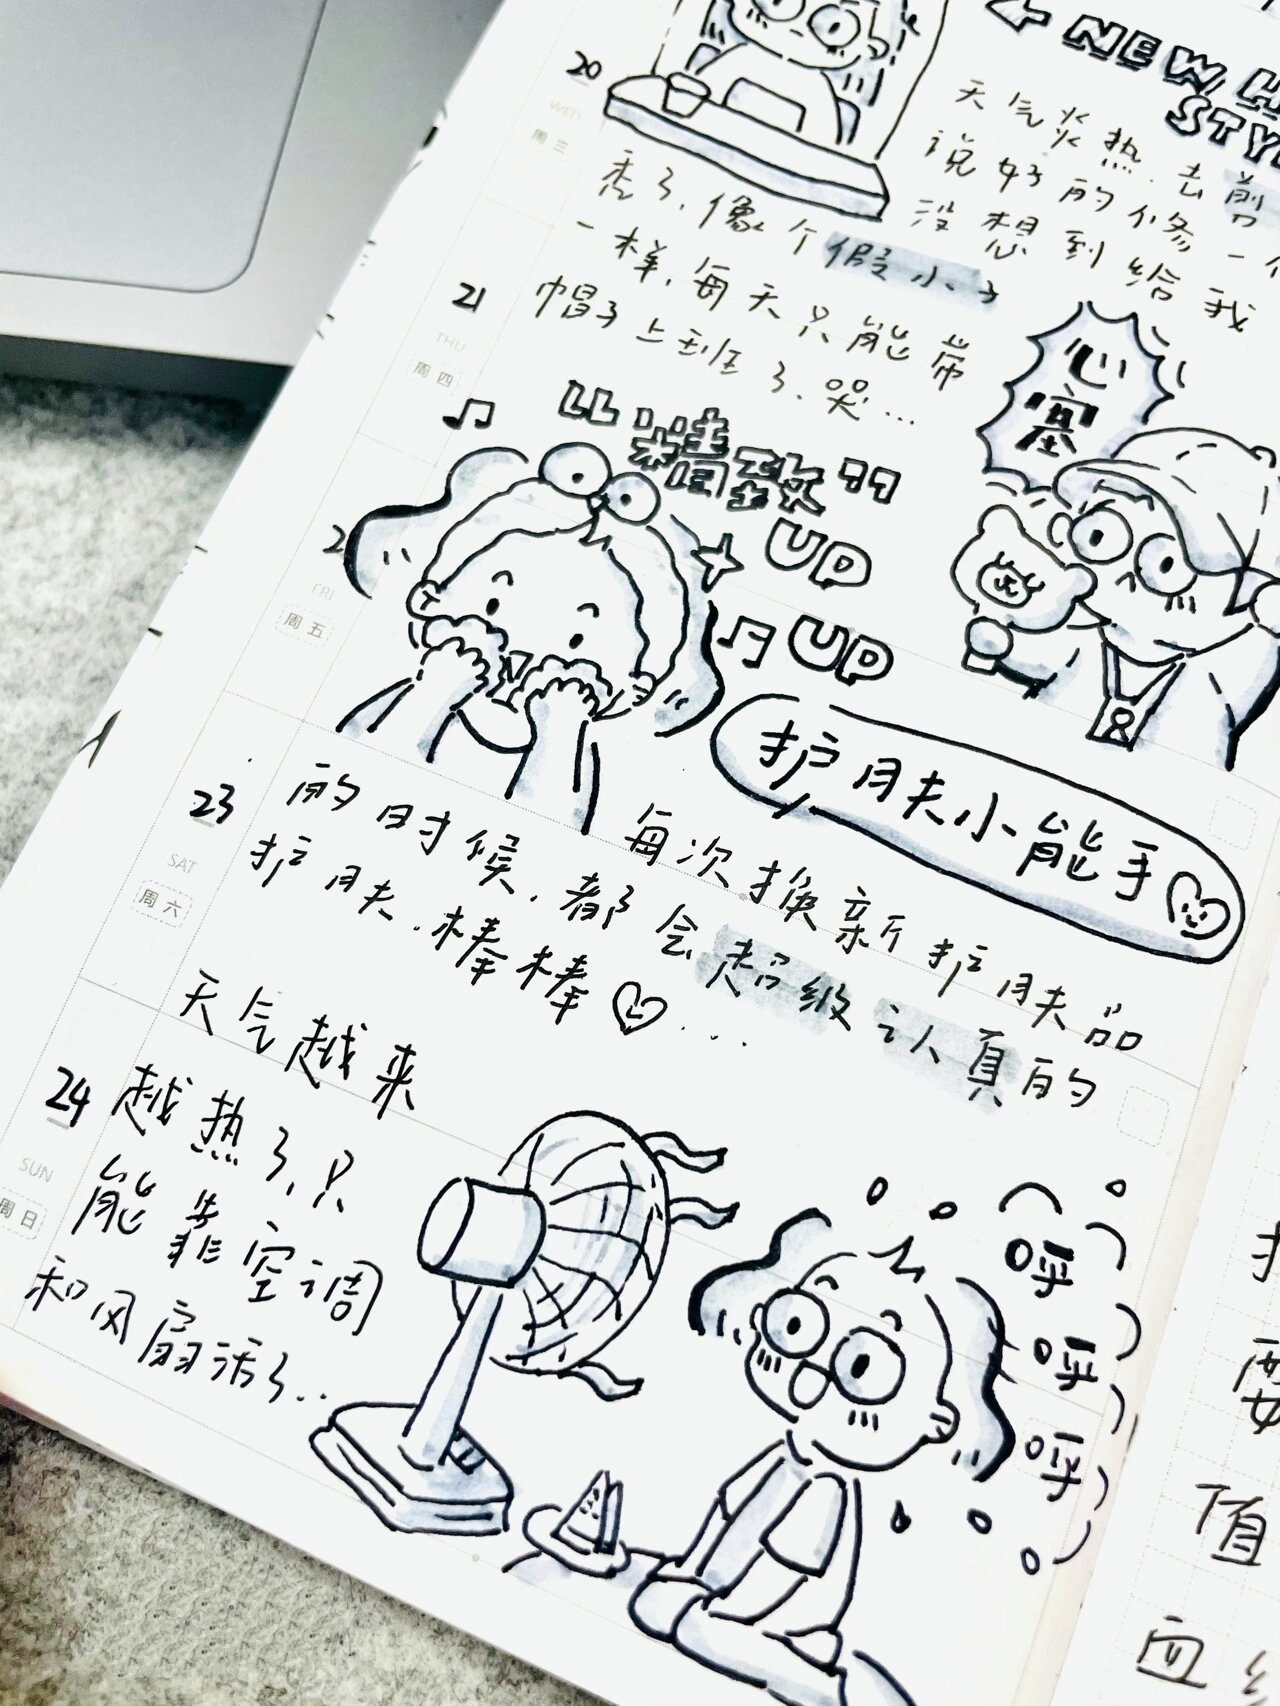 ← NEW H
STY
20
WED
周三
天气炎热.去剪
说好的修一个
没想到给我
秃了.像个假小子
一样,每天只能带
帽子上班了.哭…
21
THU
周四
心塞
"精致"
UP
UP
2
FRI
周五
护肤小能手
23
SAT
周六
每次换新护肤品
的时候.都会超级认真的
护肤.棒棒♡...
天气越来
24
越热了.只
能靠空调
和风扇活了..
SUN
周日
呼
呼
呼
要
值
血